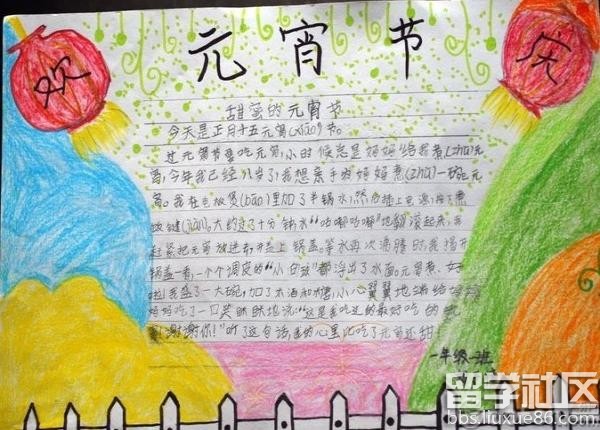 欢 庆
元宵节
甜蜜的元宵节
今天是正月十五元宵(xiāo)节。
过元宵节要吃元宵,小时候总是妈妈给我煮(zhǔ)元
宵,今年我已经八岁了,我想亲手为妈妈煮(zhǔ)一碗元
宵。我在电饭煲(bāo)里加了半锅水,然后插上电源,按了煮
饭键(jiàn),大约过了十分钟,水“咕嘟咕嘟”地翻滚起来,我
赶紧把元宵放进去,并盖上锅盖。等水再次沸腾时,我揭开
锅盖一看,一个个调皮的“小白孩”都浮出了水面。元宵煮好
啦!我盛了一大碗,加了米酒和糖,小心翼翼地端给妈妈
妈妈吃了一口笑眯眯地说:“这是我吃过的最好吃的
谢谢你!”听了这句话,我的心里比吃了元宵还甜
一年级一班
留学社区
bbs.liuxue86.com